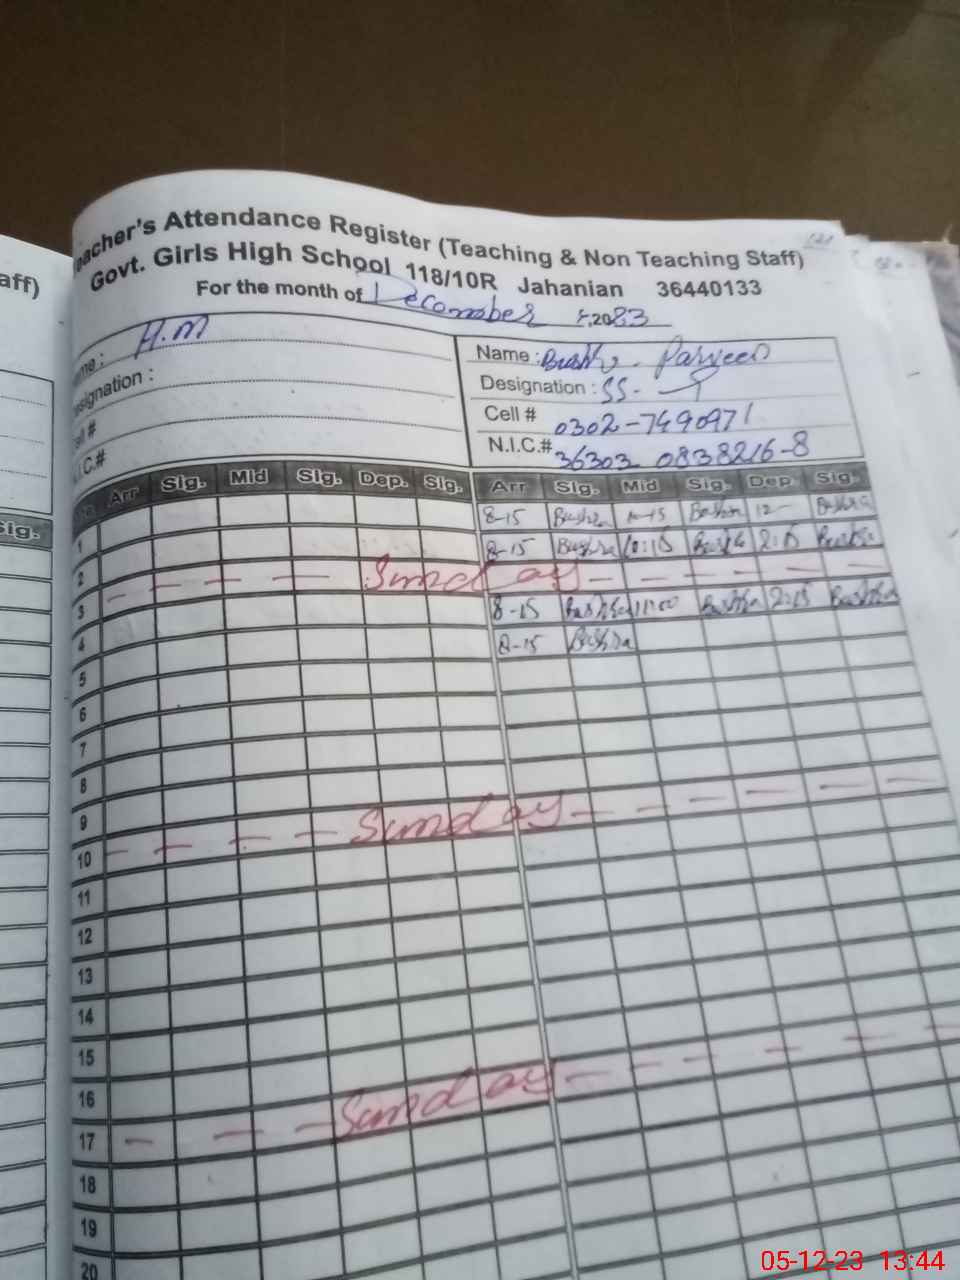 aff)
Sig.
eacher's Attendance Register (Teaching & Non Teaching Staff)
Govt. Girls High School 118/10R Jahanian 36440133
For the month of December ,2083
me : H.M
esignation :
ell #
.I.C.#
Name : Bushra Parveen
Designation : SS-
Cell # 0302-7490971
N.I.C.# 36303 0838216-8
Arr Sig. Mid Sig. Dep. Sig. Arr Sig. Mid Sig. Dep. Sig.
8-15 Bushra Bushra 12- Bushra
1 8-15 Bushra 10:15 Bushra 2:15 Bushra
2 Sunday
3 8-15 Bushra 11:00 Bushra 2:15 Bushra
4 8-15 Bushra
5
6
7
8
9
10 Sunday
11
12
13
14
15
16
17 Sunday
18
19
20
05-12-23 13:44